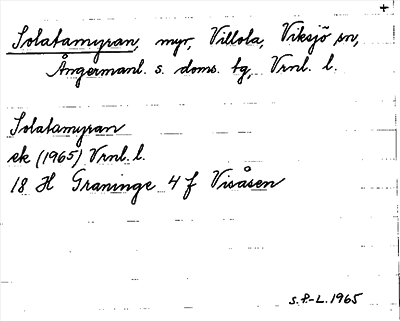 +
Solatamyran, myr, Villola, Viksjö sn,
Ångermanl. s. doms. tg, Vrnl. l.
Solatamyran
ek (1965) Vrnl. l.
18 H Graninge 4 f Visåsen
S.P.-L. 1965